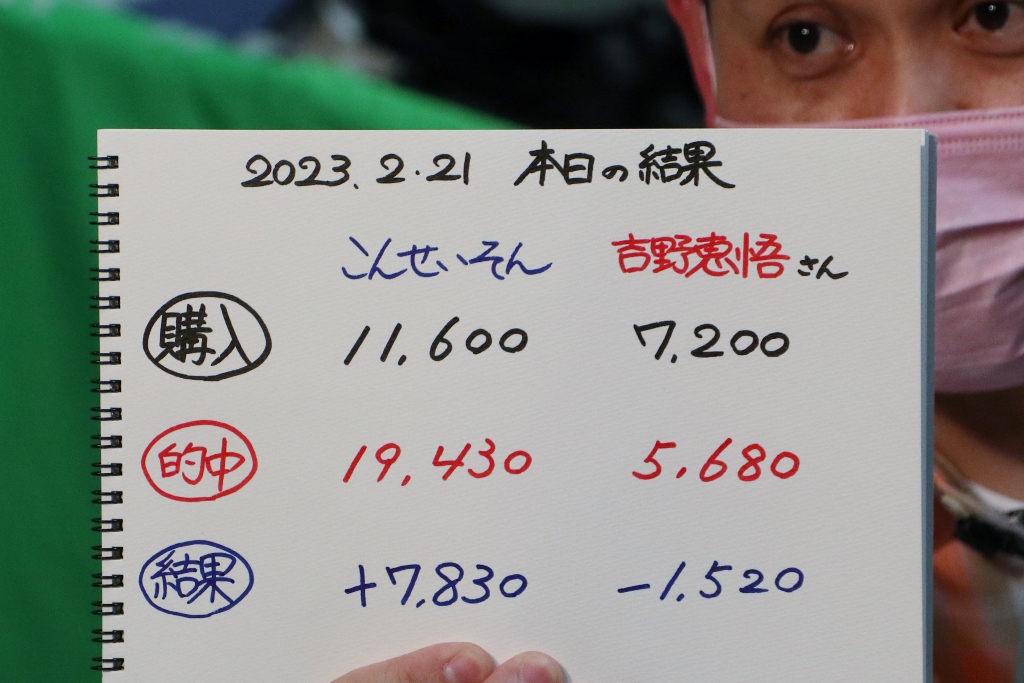 2023.2.21 本日の結果
こんせいそん 吉野恵悟さん
購入 11,600 7,200
的中 19,430 5,680
結果 +7,830 -1,520